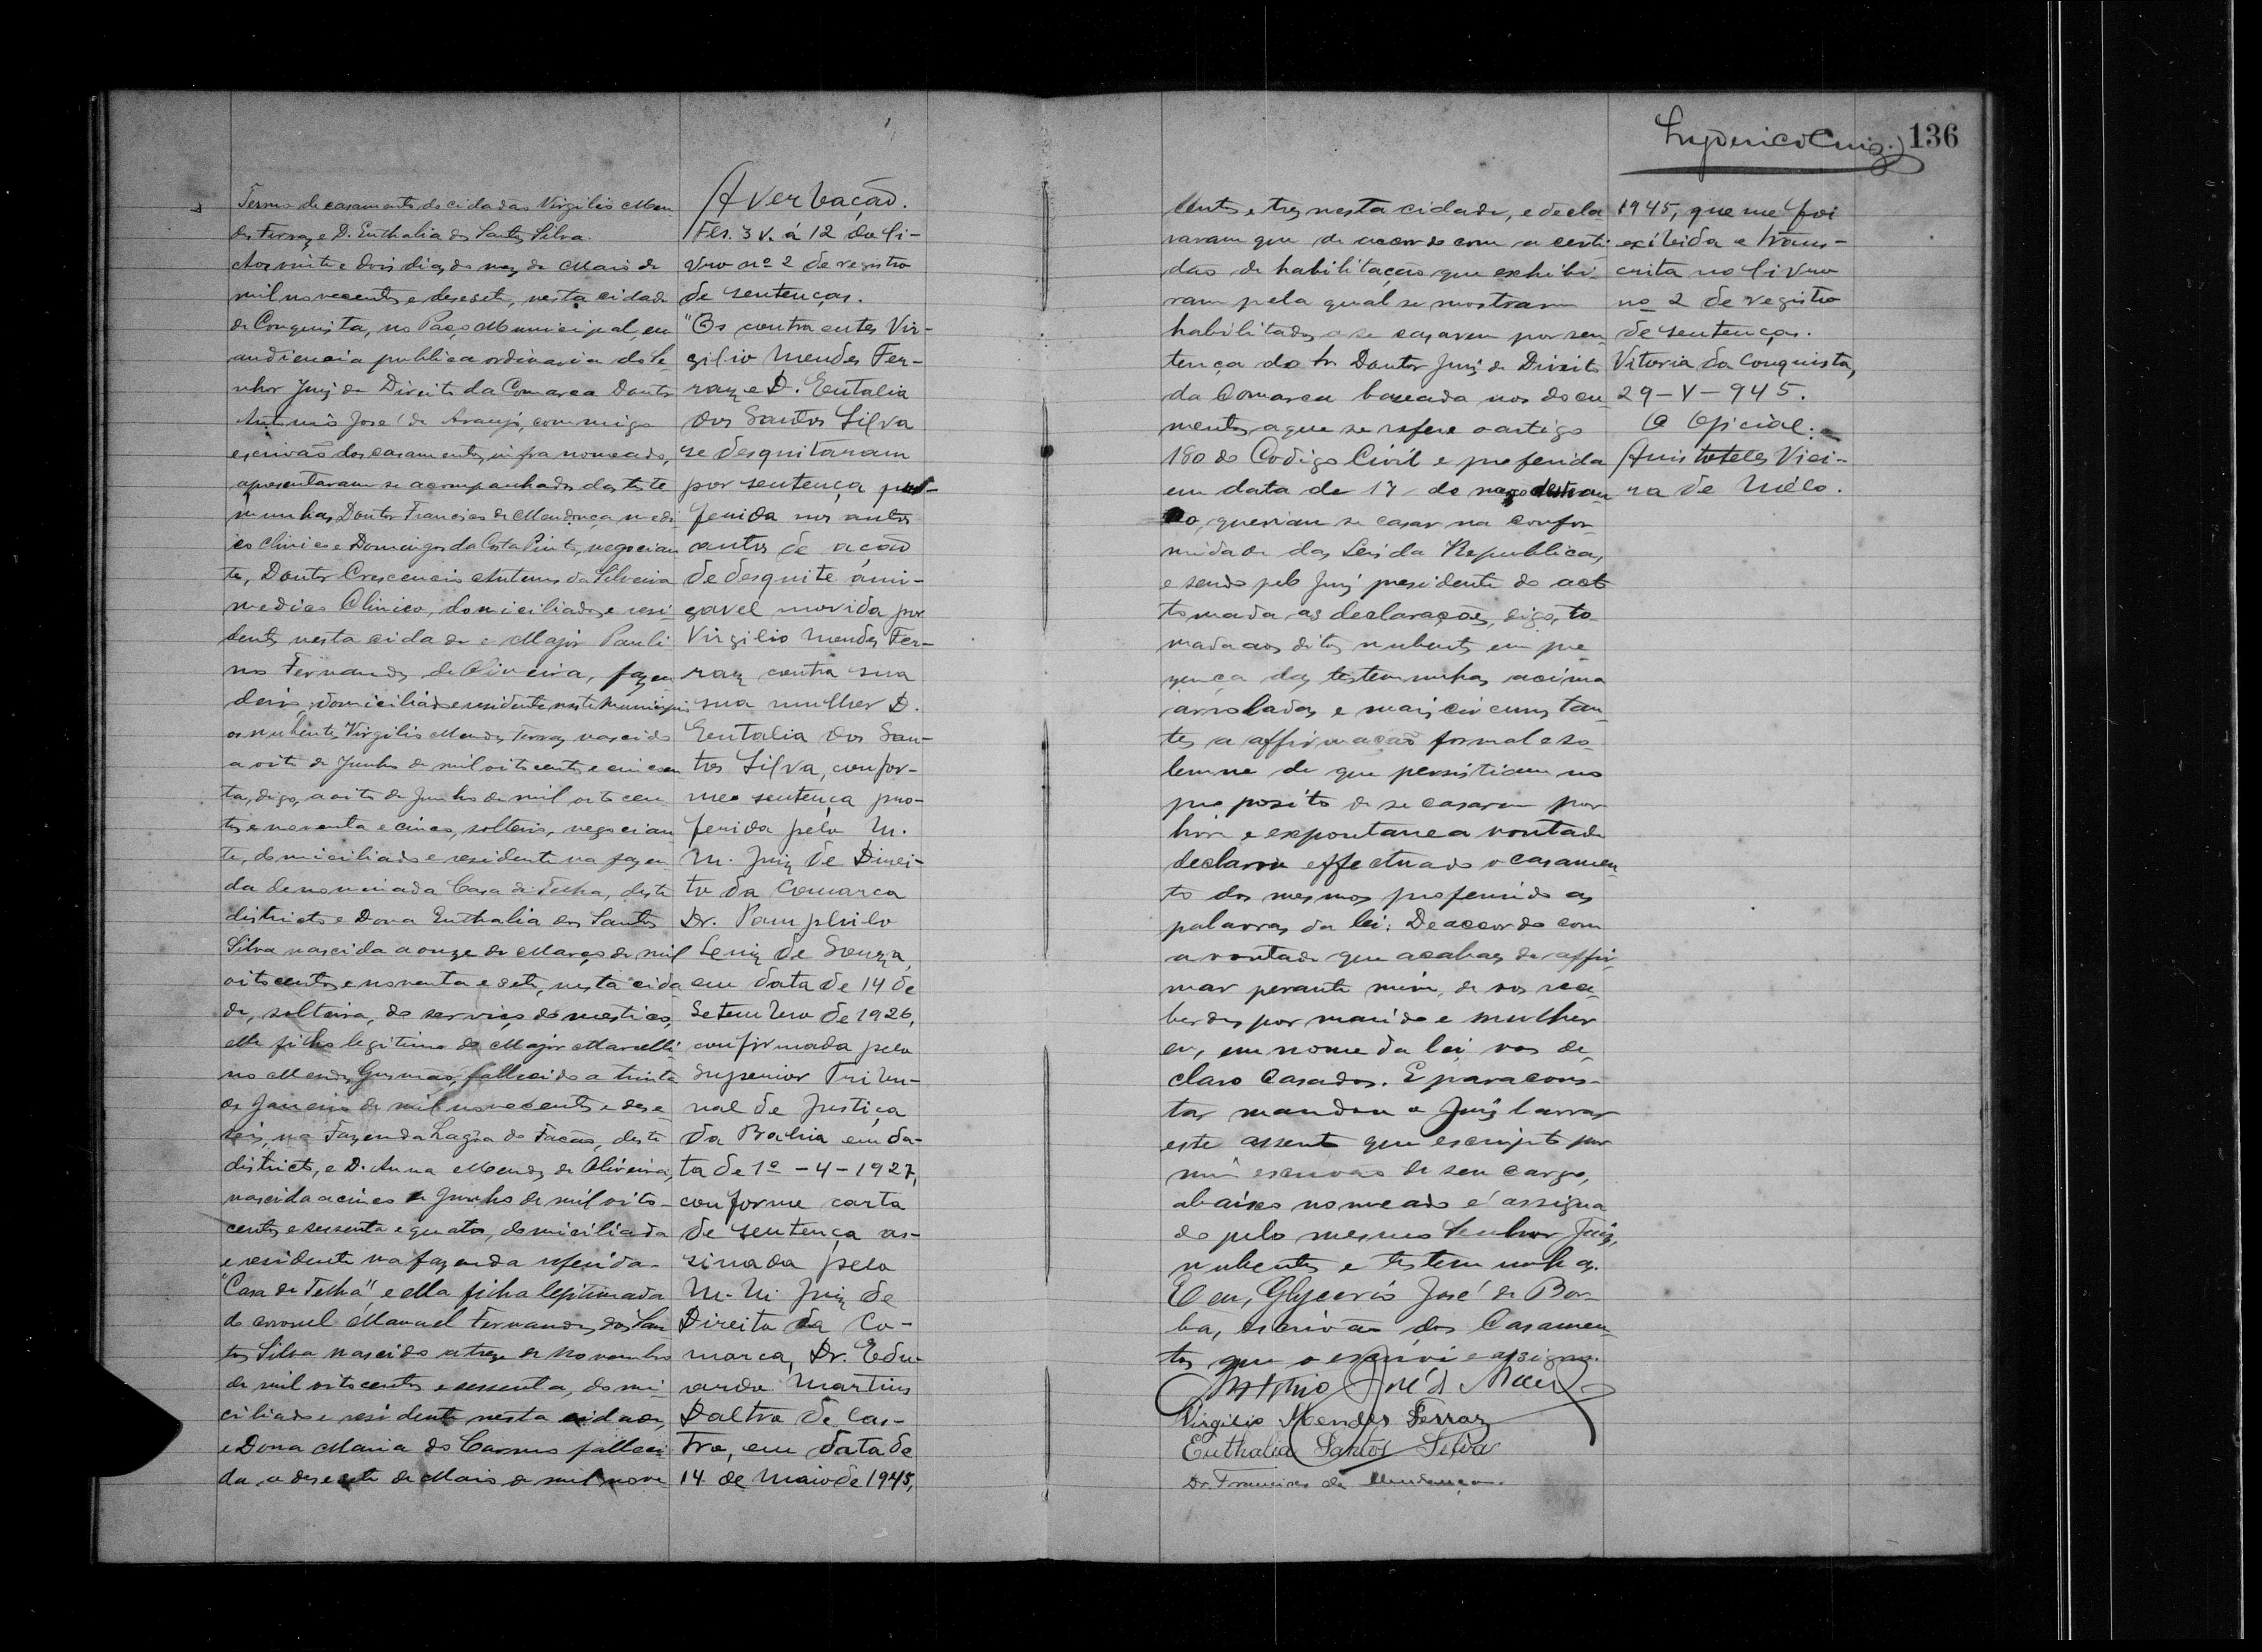 Termo de casamento do cidadão Virgilio Men
des Ferraz e D. Enthalia dos Santos Silva.
Aos vinte e dois dias do mez de Maio de
mil novecentos e desesete, nesta cidade
de Conquista, no Paço Municipal, em
audiencia publica ordinaria do Se
nhor Juiz de Direito da Comarca Doutor
Antonio José de Araujo, commigo
escrivão dos casamentos, infra nomeado,
apresentaram se acompanhados das teste
munhas, Doutor Francisco de Mendonça medi
co clinico e Domingos da Costa Pinto, negocian
te, Doutor Crescencio Antunes da Silveira
medico Clinico, domiciliados e resi
dentes nesta cidade e Major Pauli
no Fernandes de Oliveira, fazen
deiro, domiciliado e residente neste Municipio
os nubentes, Virgilio Mendes Ferraz, nascido
a oito de Junho de mil oitocentos e cincoen
ta, digo, a oito de Junho de mil oitocen
tos e noventa e cinco, solteiro, negocian
te, domiciliado e residente na fazen
da denominada Casa de Telha, deste
districto e Dona Enthalia dos Santos
Silva nascida a onze de Março de mil
oitocentos e noventa e sete, nesta cida
de, solteira, do serviço domestico,
elle filho legitimo do Major Marcelli
no Mendes Gusmão, fallecido a trinta
de Janeiro de mil novecentos e dese
seis, na Fazenda Lagôa do Facão, deste
districto, e D. Anna Mendes de Oliveira,
nascida a cinco de Junho de mil oito-
centos e sessenta e quatro, domiciliada
e residente na fazenda referida-
"Casa de Telha" e ella filha legitimada
do coronel Manuel Fernandes dos San
tos Silva nascido a treze de Novembro
de mil oitocentos e sessenta, domi
ciliado e residente nesta cidade,
e Dona Maria do Carmo falleci
da a desesete de Maio de mil nove
Averbação.
Fls. 3 v. á 12 do li-
vro nº 2 de registro
de sentenças.
"Os contraentes Vir-
gilio Mendes Fer-
raz e D. Eutalia
dos Santos Silva
se desquitaram
por sentença pro-
ferida nos autos
autos de ação
de desquite ami-
gavel movida por
Virgilio Mendes Fer-
raz contra sua
sua mulher D.
Eutalia dos San-
tos Silva, confor-
me sentença pro-
ferida pelo M.
M. Juiz de Direi-
to da Comarca
Dr. Pamphilo
Luiz de Souza,
em data de 14 de
Setembro de 1926,
confirmada pelo
Superior Tribu-
nal de Justiça
da Bahia em da-
ta de 1º - 4 - 1927,
conforme carta
de sentença as-
sinada pelo
M. M. Juiz de
Direito da Co-
marca, Dr. Edu-
ardo Martins
Daltro de Cas-
tro, em data de
14 de Maio de 1945,
136
centos e tres nesta cidade, e decla
raram que de accordo com a certi
dão de habilitação que exhibi-
ram pela qual se mostraram
habilitados a se casarem por sen
tença do Sr. Doutor Juiz de Direito
da Comarca baseada nos docu
mentos a que se refere o artigo
180 do Codigo Civil e proferida
em data de 17 do
queriam se casar na confor
midade das Leis da Republica,
e sendo pelo Juiz presidente do acto
tomada as declarações, digo, to-
mada aos ditos nubentes em pre
zença das testemunhas acima
arroladas e mais circumstan
tes a affirmação formal e so-
lemne de que persistiam no
proposito de se casarem por
livre e expontanea vontade
declarou effectuado o casamen
to dos mesmos proferindo as
palavras da lei: De accordo com
a vontade que acabaes de affir-
mar perante mim, de vos rece-
berdes por marido e mulher
eu, em nome da lei vos de-
claro casados. E para cons-
tar mandou o Juiz lavrar
este assento que escripto por
mim escrivão de seu cargo,
abaixo nomeado é assigna
do pelo mesmo Senhor Juiz,
nubentes e testemunhas.
E eu, Glycerio José de Bor-
ba, escrivão dos Casamen
tos que o escrevi e assigno.
Antonio José d'
Virgilio Mendes Ferraz
Enthalia Santos Silva
Dr. Francisco de Mendonça.
1945, que me foi
exibida e trans-
crita no livro
nº 2 de registro
de sentenças.
Vitoria da Conquista,
29 - V - 945.
O Oficial:
Aristoteles Viei-
ra de Mélo.